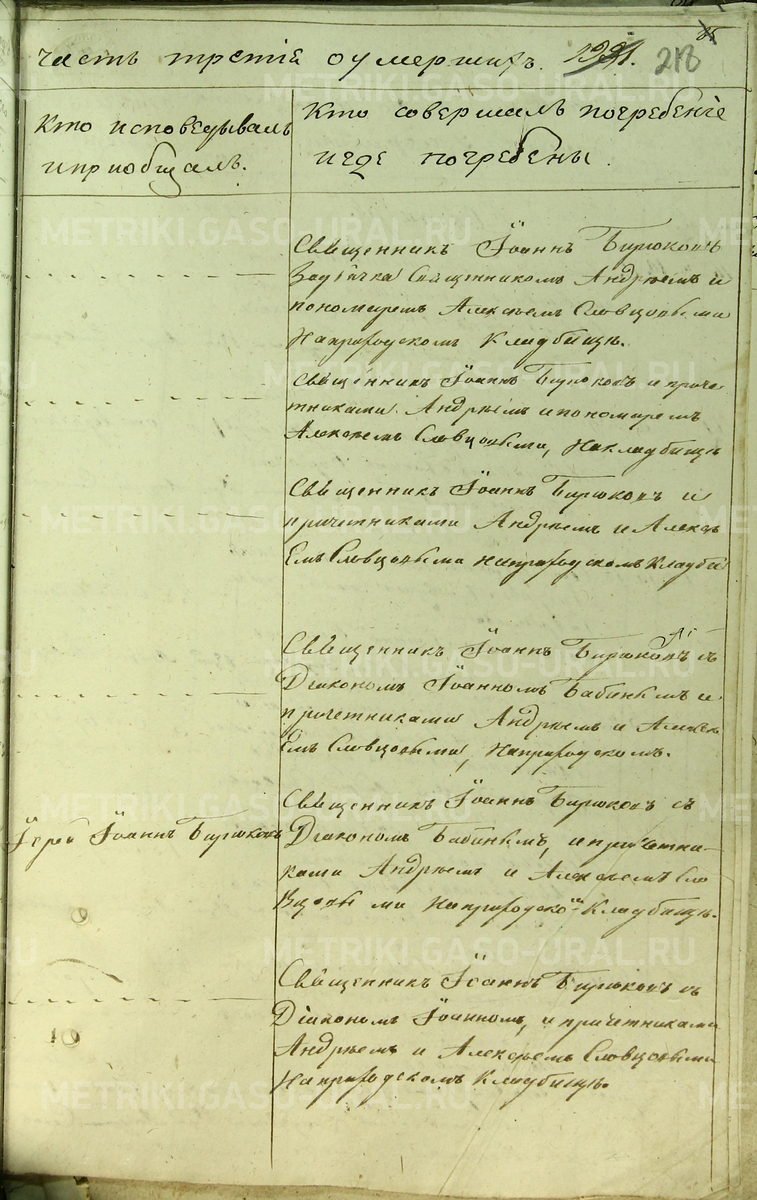 часть третiя оумершихъ. 218
Кто исповедывалъ
и приобщалъ.
Кто совершалъ погребенiе
и где погребены.
Священникъ Iоаннъ Бирюковъ
Священникомъ Андреемъ и
пономаремъ Алексеемъ Словцовыми
На приходскомъ Кладбище.
Священникъ Iоаннъ Бирюковъ и приче-
тниками Андреемъ и пономаремъ
Алексеемъ Словцовыми, На кладбище
Священникъ Iоаннъ Бирюковъ и
причетниками Андреемъ и Алексе
Емъ Словцовыми на приходскомъ Кладби
Священникъ Iоаннъ Бирюковъ съ
Дiакономъ Iоанномъ Бабинымъ и
причетниками Андреемъ и Алексе
Емъ Словцовыми, На приходскомъ.
Iерей Iоаннъ Бирюковъ
Священникъ Iоаннъ Бирюковъ съ
Дiакономъ Бабинымъ, и причетни-
ками Андреемъ и Алексеемъ Сло
вцовы ми На приходско Кладбище.
Священникъ Iоаннъ Бирюковъ съ
Дiакономъ Iоанномъ, и причетниками
Андреемъ и Алексеемъ Словцовыми
На приходскомъ Кладбище.
METRIKI.GASO-URAL.RU